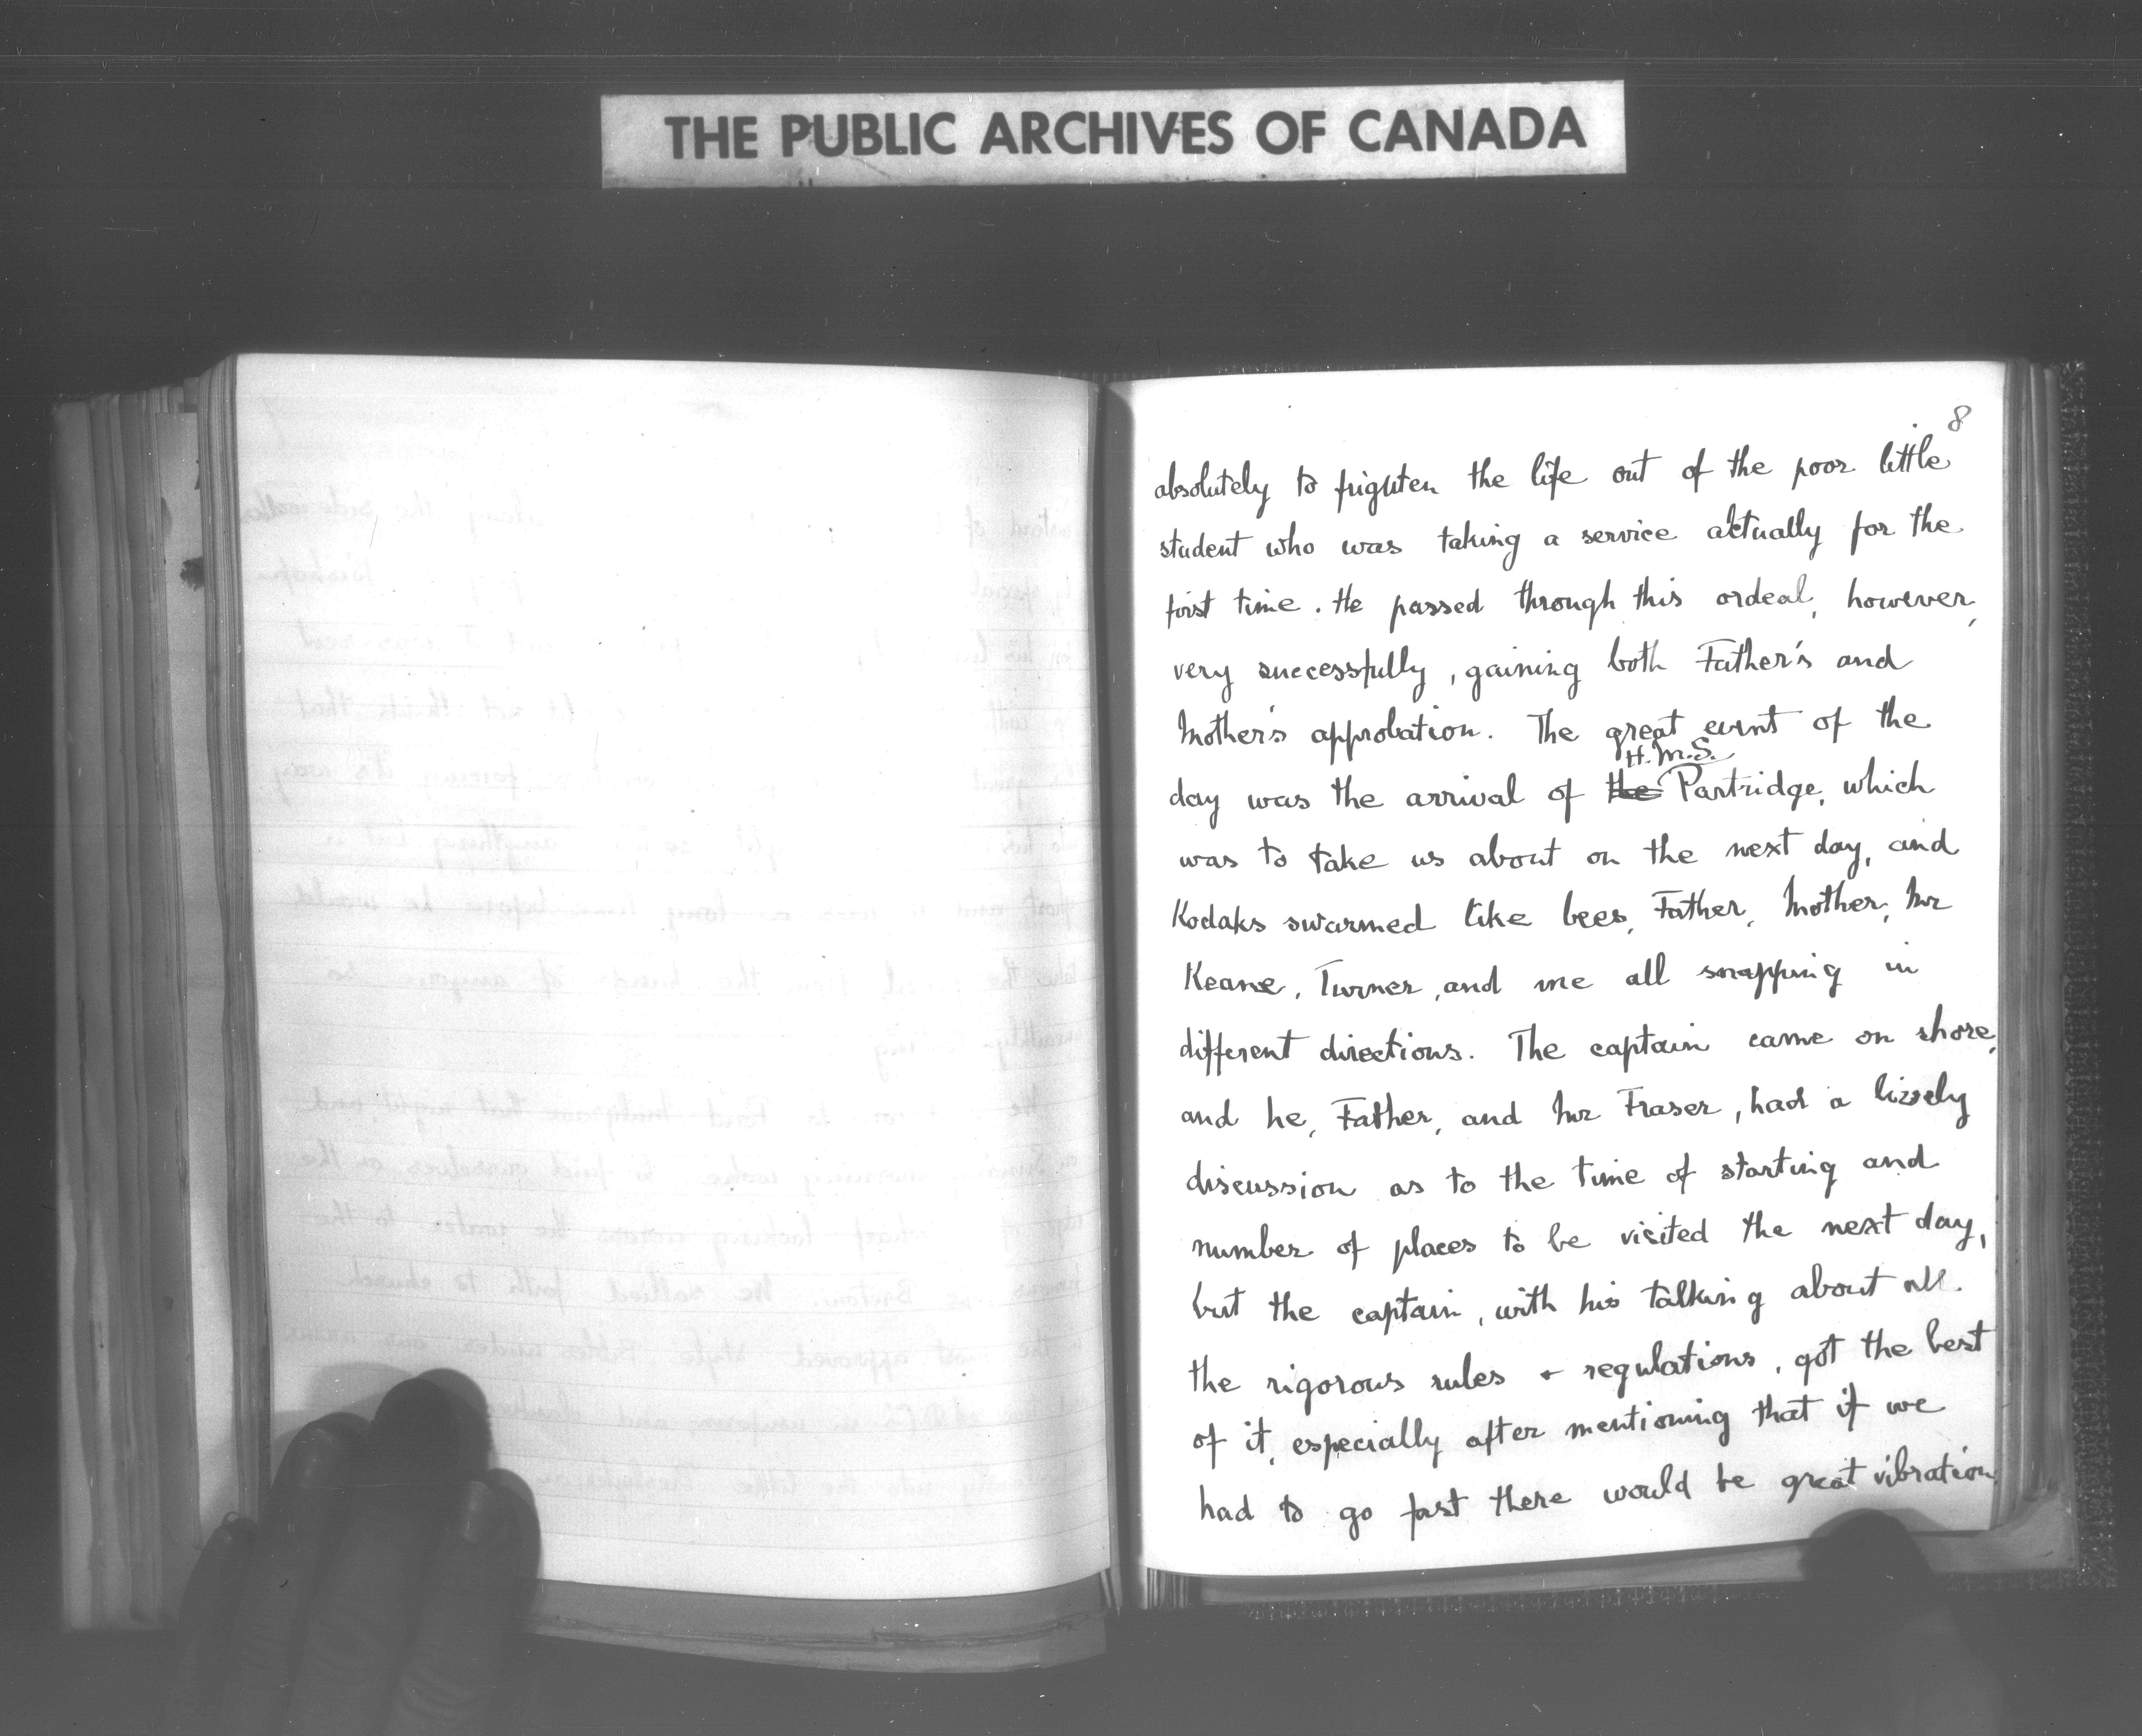 THE PUBLIC ARCHIVES OF CANADA
8
absolutely to frighten the life out of the poor little
student who was taking a service actually for the
first time. He passed through this ordeal, however,
very successfully, gaining both Father's and
Mother's approbation. The great event of the
H.M.S.
day was the arrival of the Partridge, which
was to take us about on the next day, and
Kodaks swarmed like bees, Father, Mother, Mr
Keane, Turner, and me all snapping in
different directions. The captain came on shore,
and he, Father, and Mr Fraser, had a lively
discussion as to the time of starting and
number of places to be visited the next day,
but the captain, with his talking about all
the rigorous rules + regulations, got the best
of it, especially after mentioning that if we
had to go fast there would be great vibration